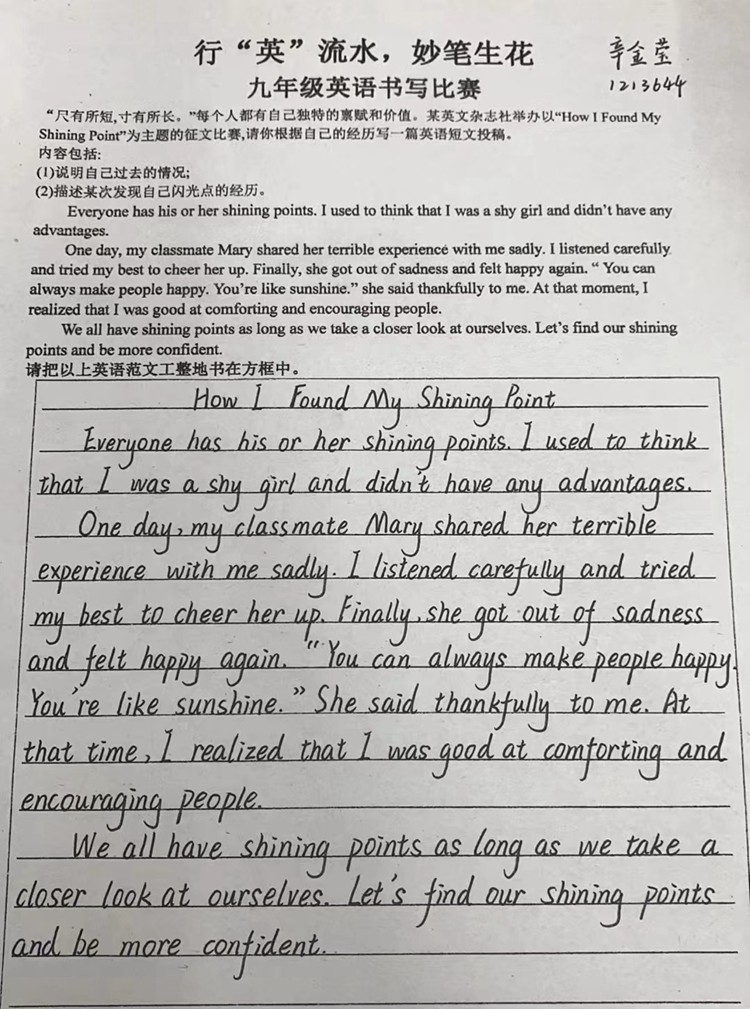 行“英”流水，妙笔生花
辛金莹
九年级英语书写比赛
1213644
“尺有所短,寸有所长。”每个人都有自己独特的禀赋和价值。某英文杂志社举办以“How I Found My
Shining Point”为主题的征文比赛,请你根据自己的经历写一篇英语短文投稿。
内容包括:
(1)说明自己过去的情况;
(2)描述某次发现自己闪光点的经历。
Everyone has his or her shining points. I used to think that I was a shy girl and didn't have any
advantages.
One day, my classmate Mary shared her terrible experience with me sadly. I listened carefully
and tried my best to cheer her up. Finally, she got out of sadness and felt happy again. “ You can
always make people happy. You're like sunshine.” she said thankfully to me. At that moment, I
realized that I was good at comforting and encouraging people.
We all have shining points as long as we take a closer look at ourselves. Let's find our shining
points and be more confident.
请把以上英语范文工整地书在方框中。
How I Found My Shining Point
Everyone has his or her shining points. I used to think
that I was a shy girl and didn't have any advantages.
One day, my classmate Mary shared her terrible
experience with me sadly. I listened carefully and tried
my best to cheer her up. Finally, she got out of sadness
and felt happy again. “You can always make people happy.
You're like sunshine.” She said thankfully to me. At
that time, I realized that I was good at comforting and
encouraging people.
We all have shining points as long as we take a
closer look at ourselves. Let's find our shining points
and be more confident.